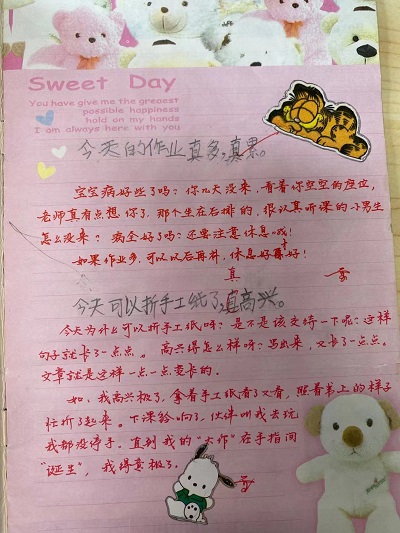 Sweet Day
You have give me the greoest
possible happiness
hold on my hands
I am always here with you
今天的作业真多,真累。
宝宝病好些了吗?你几天没来,看着你空空的座位,
老师真有点想你了,那个坐在后排的,很认真听课的小男生
怎么没来?病全好了吗?还要注意休息哦!
如果作业多,可以以后再补,休息好
真
今天可以折手工纸了,真高兴。
今天为什么可以折手工纸呀?是不是该交待一下呢?这样
句子就长了一点点。高兴得怎么样呀?写出来,又长了一点点。
文章就是这样一点一点变长的。
如:我高兴极了,拿着手工纸看了又看,照着书上的样子
忙折了起来。下课铃响了,伙伴叫我去玩
我都没停手,直到我的"大作"在手指间
"诞生",我得意极了。